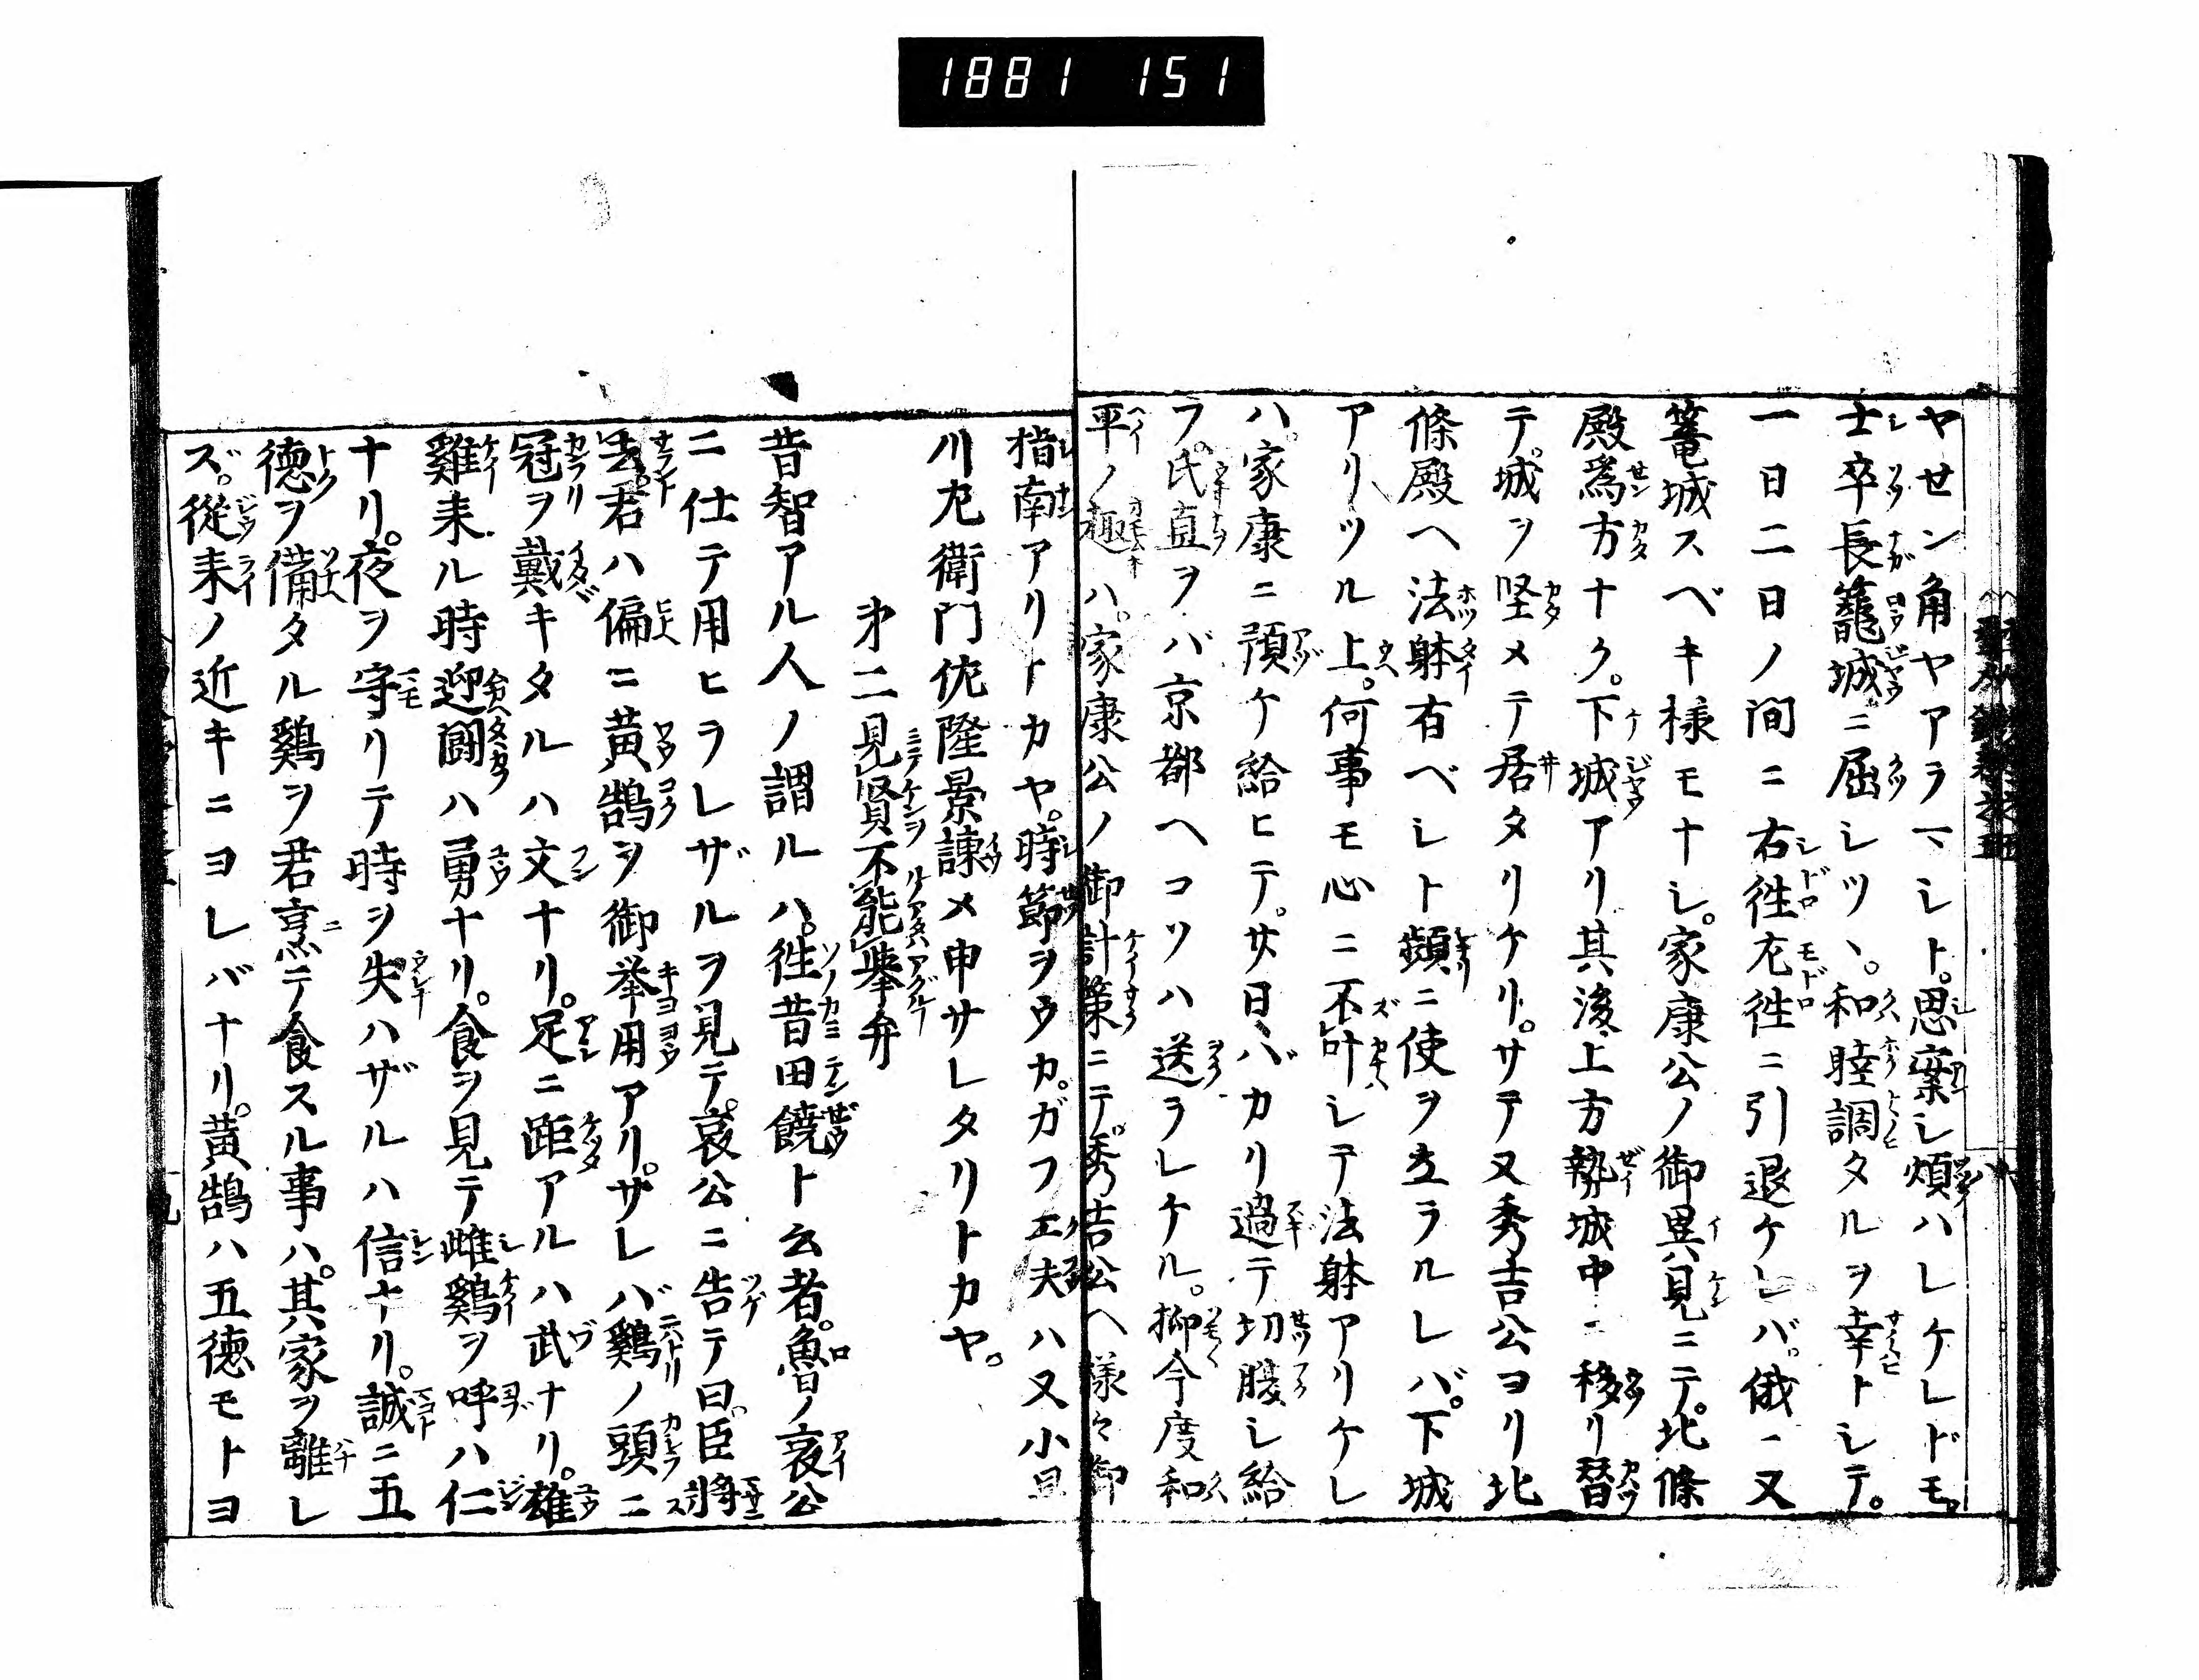 1881 151
ヤセン角ヤアラマシト。思案シ煩ハレケレドモ。
士卒長篭城ニ屈シツヽ。和睦調タルヲ幸トシテ。
一日二日ノ間ニ右徃尢徃ニ引退ケレバ。俄ニ又
篭城スベキ様モナシ。家康公ノ御異見ニテ。北條
殿爲方ナク。下城アリ其後上方勢城中ニ移リ替
テ。城ヲ堅メテ居タリケリ。サテ又秀吉公ヨリ北
條殿ヘ法躰有ベシト頻ニ使ヲ立ラルレバ。下城
アリツル上。何事モ心ニ不叶シテ法躰アリケレ
ハ。家康ニ預ケ給ヒテ。廿日バカリ過テ切腹シ給
フ。氏直ヲバ京都ヘコソハ送ラレケル。抑今度和
平ノ趣ハ。家康公ノ御計策ニテ。秀吉公ヘ様々御
指南アリトカヤ。時節ヲウカガフ工夫ハ又小旦
川尢衛門佐隆景諫メ申サレタリトカヤ。
第二見賢不能挙弁
昔智アル人ノ謂ルハ。徃昔田饒ト云者。魯ノ哀公
ニ仕テ用ヒラレザルヲ見テ。哀公ニ告テ曰。臣將
去。君ハ偏ニ黄鵠ヲ御挙用アリ。サレバ鷄ノ頭ニ
冠ヲ戴キタルハ文ナリ。足ニ距アルハ武ナリ。雄
雞来ル時迎闘ハ勇ナリ。食ヲ見テ雌鷄ヲ呼ハ仁
ナリ。夜ヲ守リテ時ヲ失ハザルハ信ナリ。誠ニ五
徳ヲ備タル鷄ヲ君烹テ食スル事ハ。其家ヲ離レ
ズ。從来ノ近キニヨレバナリ。黄鵠ハ五徳モトヨ